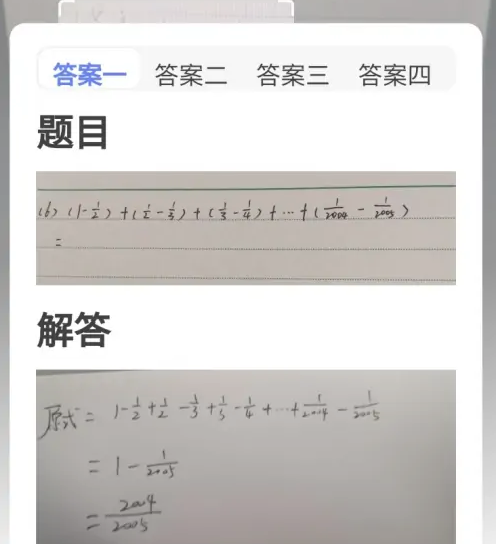 答案一 答案二 答案三 答案四
题目
(6) (1-1/2)+(1/2-1/3)+(1/3-1/4)+…+(1/2004-1/2005)
=
解答
原式= 1-1/2+1/2-1/3+1/3-1/4+…+1/2004-1/2005
= 1-1/2005
= 2004/2005